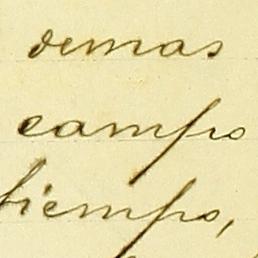 demas
campo
tiempo,